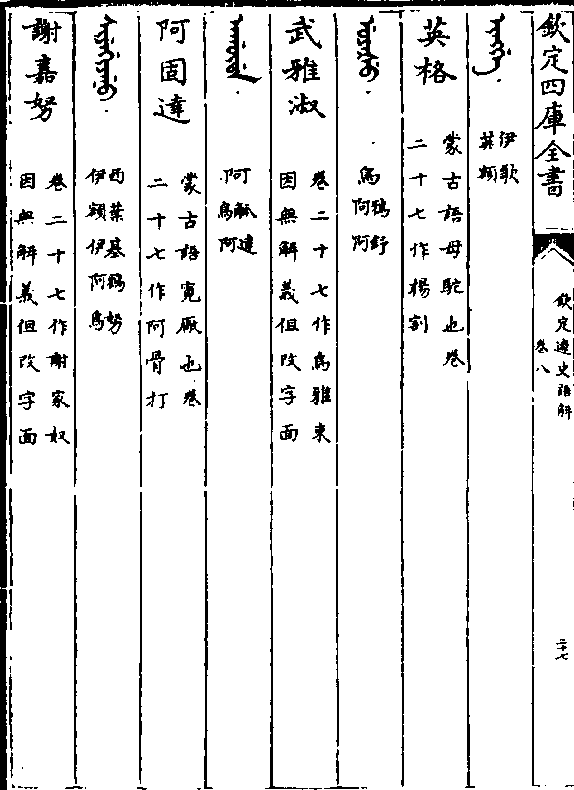 欽定四庫全書
欽定遼史語解
卷八
二十七
伊歌
英額
英格
蒙古語母駝也卷
二十七作楊割
烏鴉舒
阿阿
武雅淑
卷二十七作烏雅束
因無解義但改字面
阿觚達
烏阿
阿固達
蒙古語寬廠也卷
二十七作阿骨打
西葉基鴉努
伊額伊阿烏
謝嘉努
卷二十七作謝家奴
因無解義但改字面